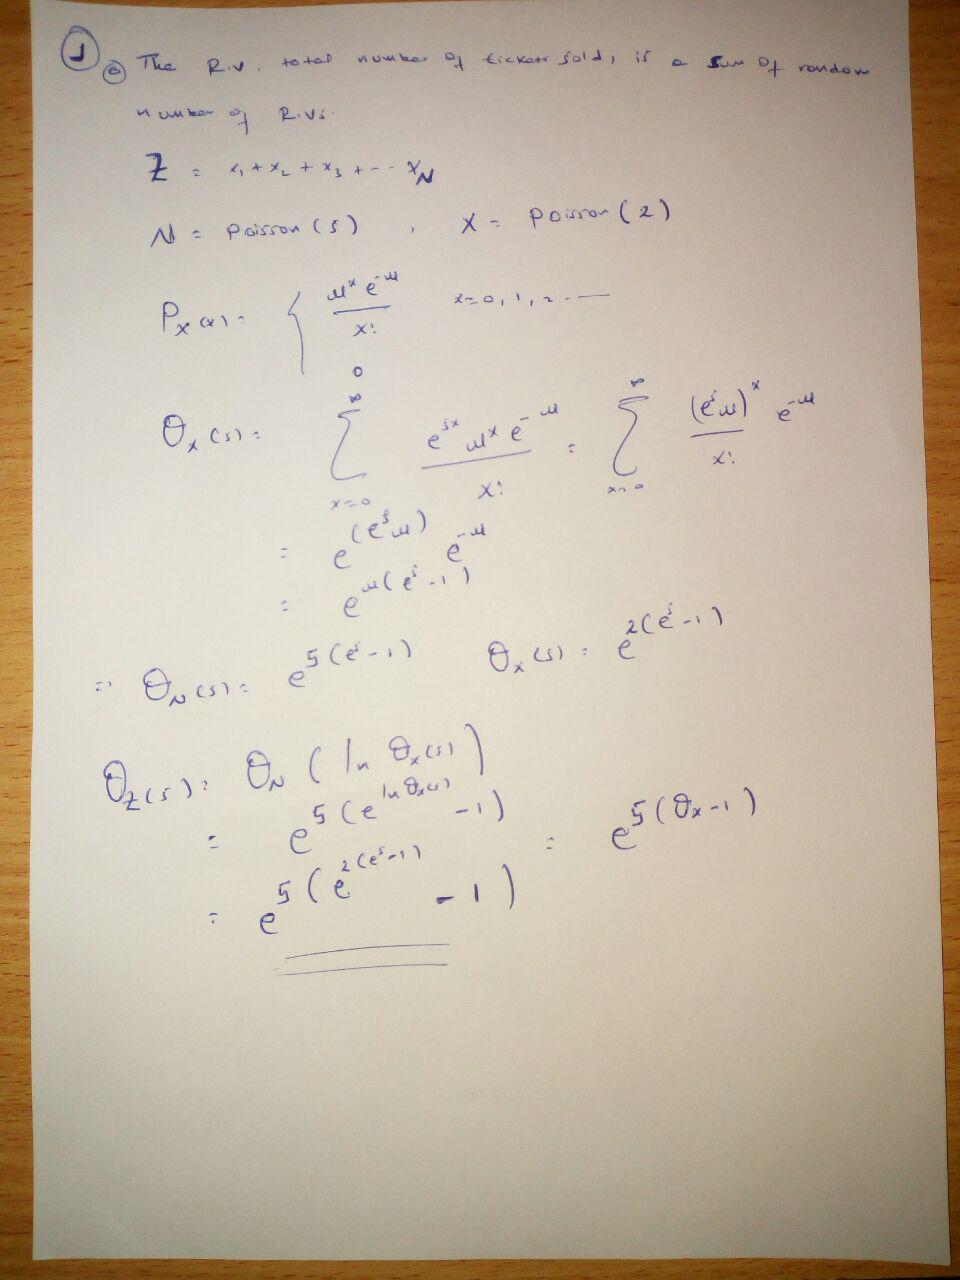 ① ⓐ The R.V. total number of tickets sold, is a sum of random
number of R.Vs.
Z = x₁ + x₂ + x₃ + -- x_N
N = Poisson (5) , X = Poisson (2)
P_X (x) = { μ^x e^-μ / x! x=0, 1, 2 ...—
0
Θ_x (s) = ∑_{x=0}^∞ e^{sx} μ^x e^-μ / x! = ∑_{x=0}^∞ (e^s μ)^x e^-μ / x!
= e^(e^s μ) e^-μ
= e^μ(e^s - 1)
∴ Θ_N (s) = e^5(e^s - 1) Θ_x (s) = e^2(e^s - 1)
Θ_Z (s) = Θ_N ( ln Θ_x (s) )
= e^5(e^{ln Θ_x(s)} - 1) = e^5(Θ_x - 1)
= e^5(e^{2(e^s - 1)} - 1)